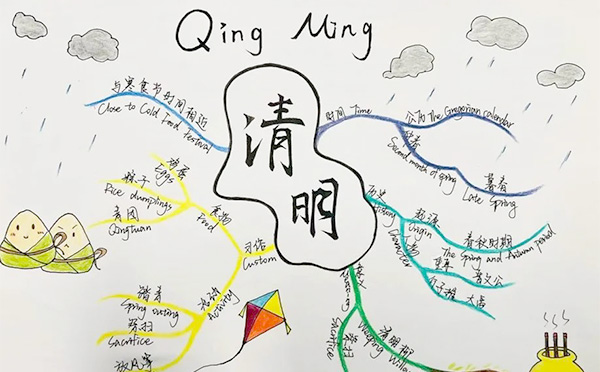 Qing Ming
清明
与寒食节时间相近
Close to Cold Food Festival
时间 Time
公历 The Gregorian calendar
Second month of spring
暮春
Late Spring
历史
History
起源
Origin
春秋时期
The Spring and Autumn period
人物
Character
晋文公
介子推
大虎
习俗
Custom
食物
Food
鸡蛋
Eggs
粽子
Rice dumplings
青团
QingTuan
活动
Activity
踏青
Spring outing
祭扫
Sacrifice
放风筝
祭扫
Sacrifice
清明柳
Weeping Willow